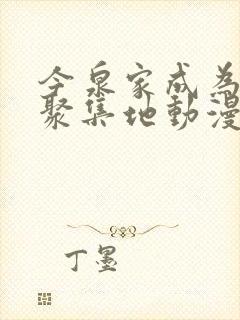 今泉家成為
聚集地動漫
丁墨